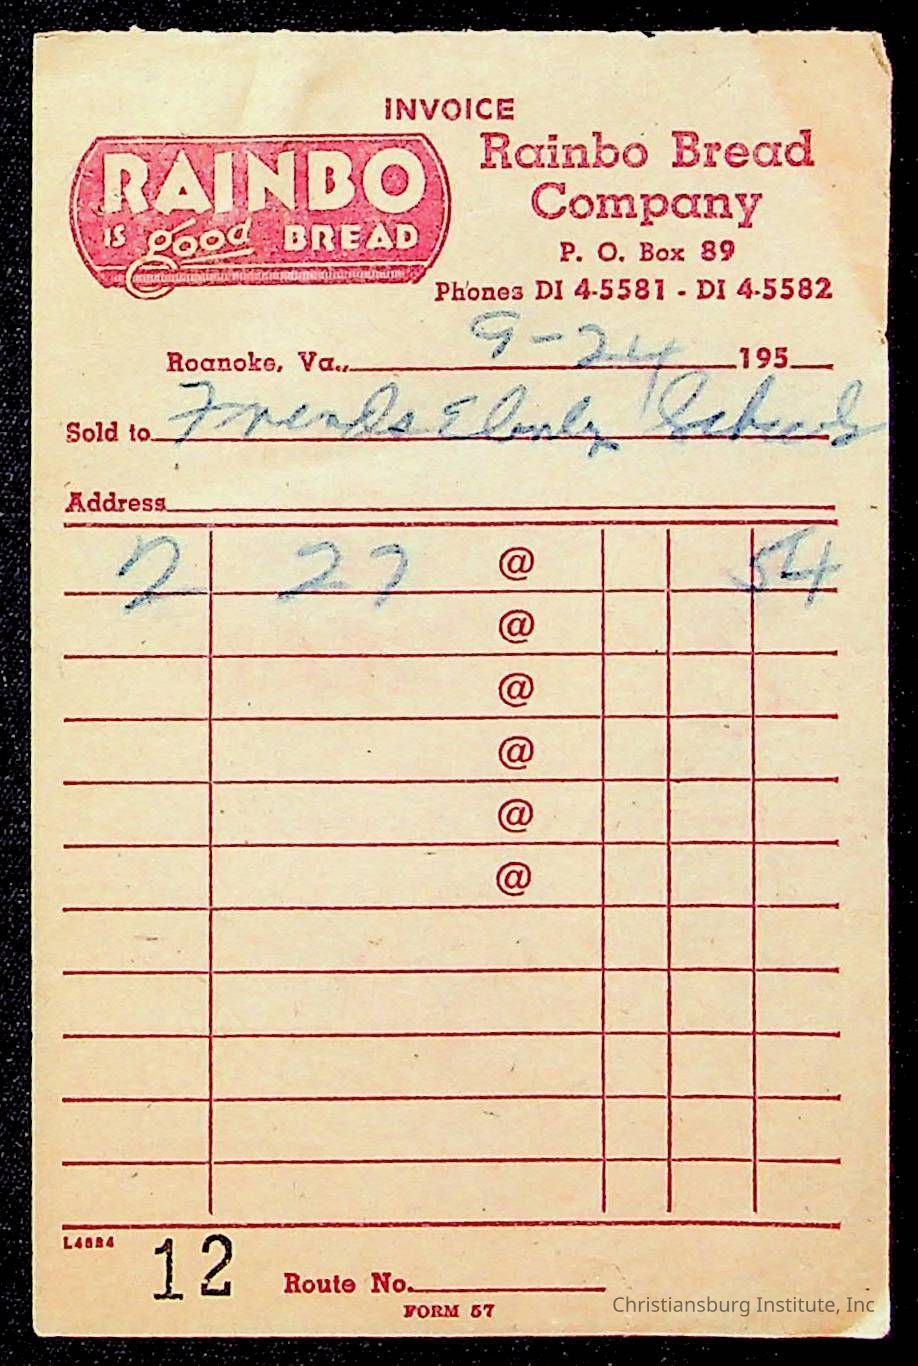 INVOICE
RAINBO
IS good BREAD
Rainbo Bread
Company
P. O. Box 89
Phones DI 4-5581 - DI 4-5582
Roanoke, Va., 9-24 195
Sold to Friends Elenly School
Address
2 27 @ 54
@
@
@
@
@
L4884
12 Route No.
FORM 57
Christiansburg Institute, Inc